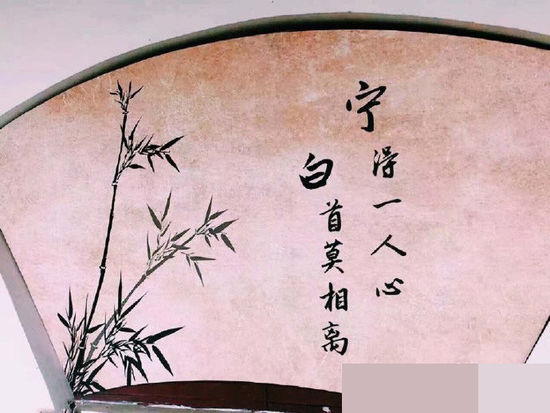 宁得一人心
白首莫相离